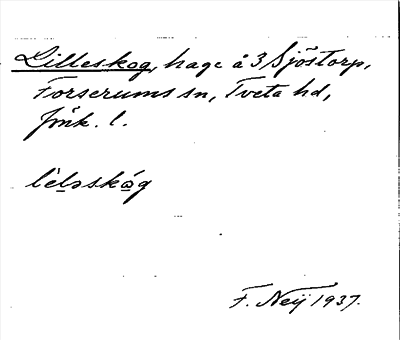 Lilleskog, hage å 3 Sjöstorp,
Forserums sn, Tveta hd,
Jönk. l.
lèləskóg
F. Neij 1937.